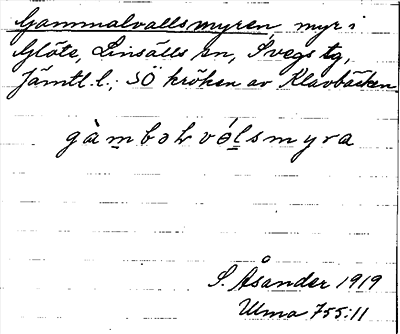 Gammalvallsmyren, myr i
Glöte, Linsälls sn, Svegs tg,
Jämtl. l.; SÖ kröken av Klavbäcken.
gàmbəLvớlsmyra
S. Åsander 1919
Ulma 755:11